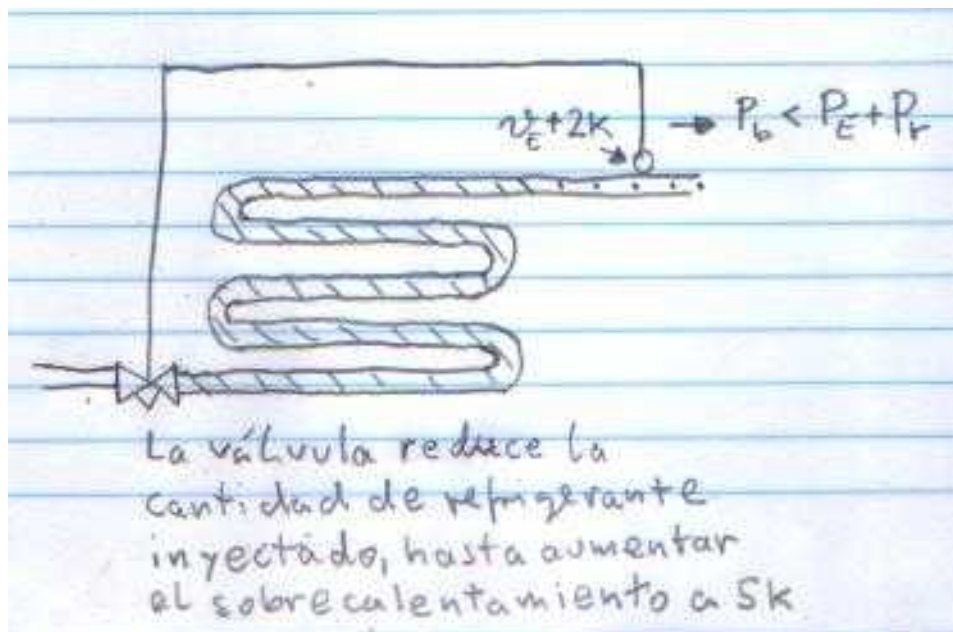 ϑ_E+2K → P_b < P_E + P_r
La válvula reduce la
cantidad de refrigerante
inyectado, hasta aumentar
el sobrecalentamiento a 5k